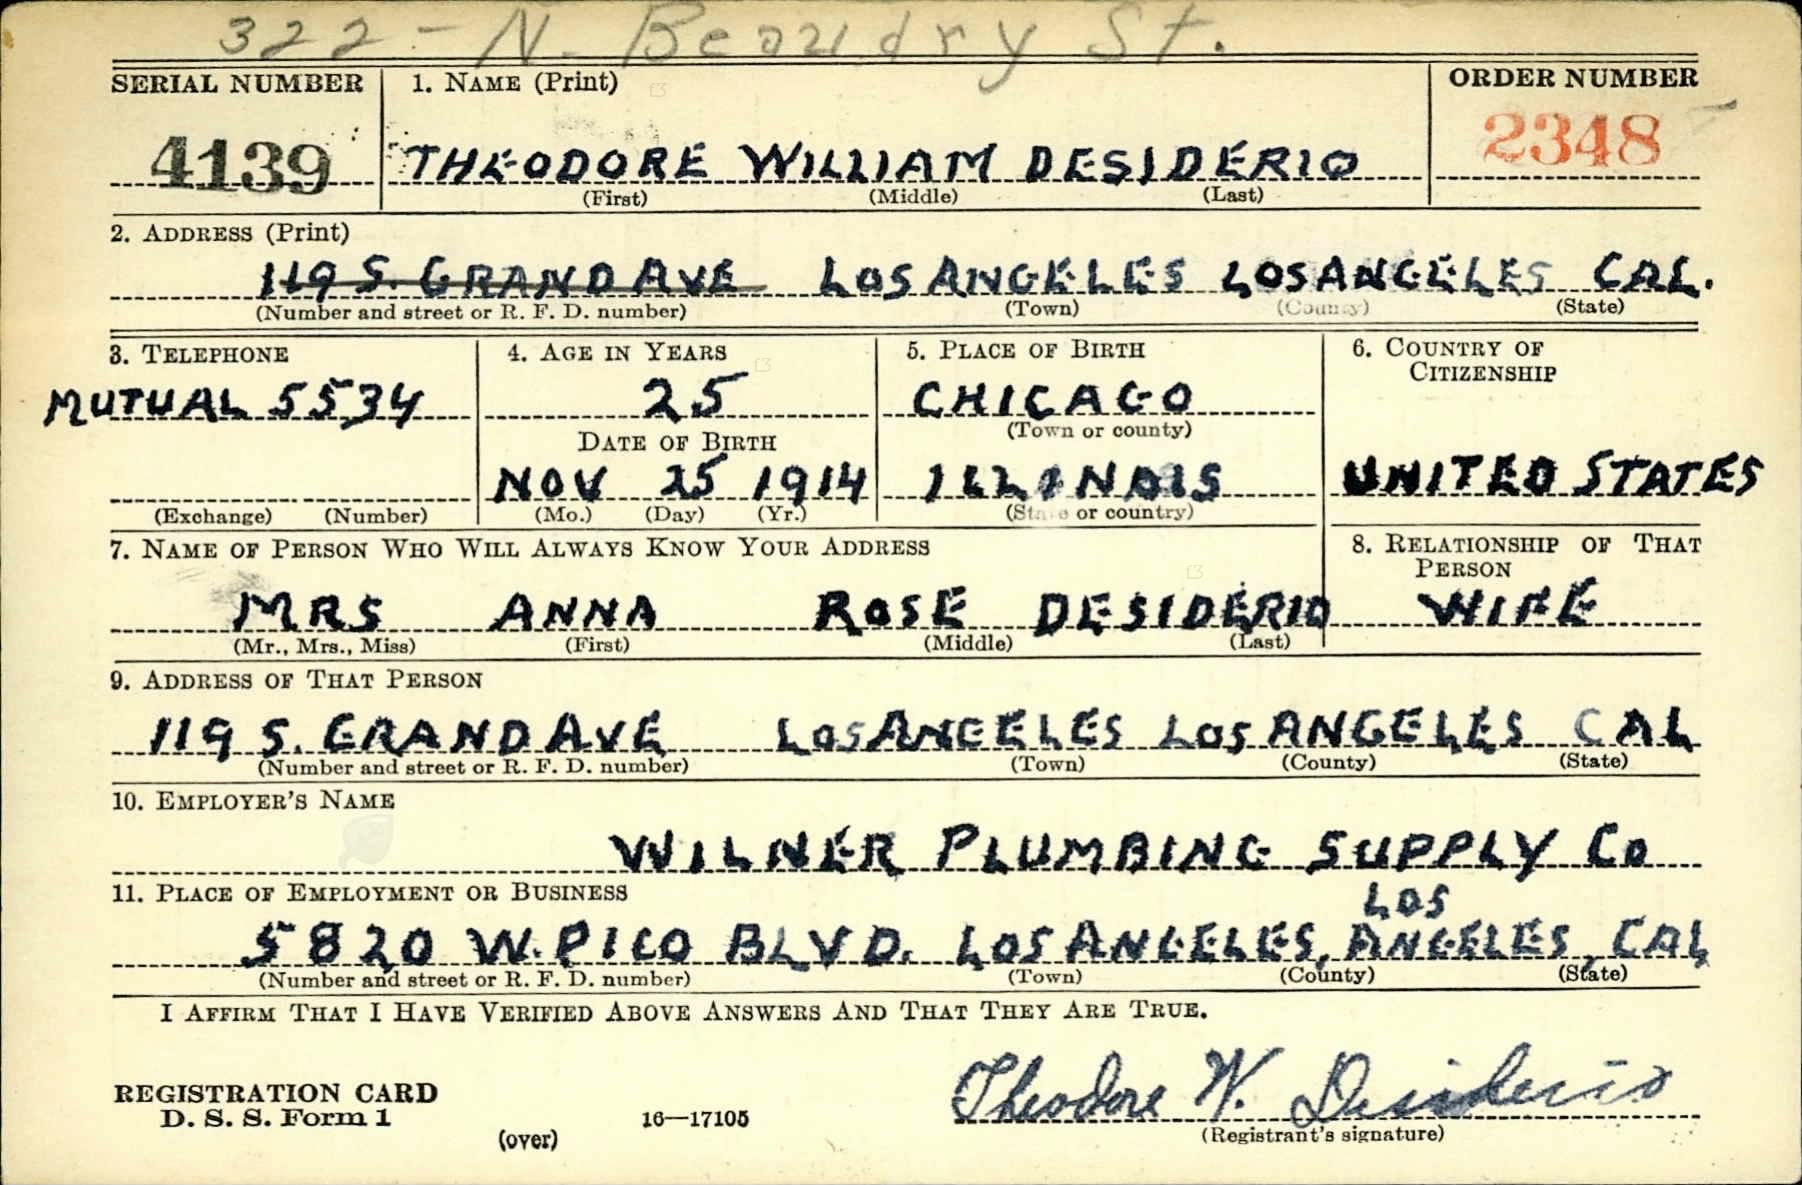 322 - N. Beaudry St.
SERIAL NUMBER 1. NAME (Print) ORDER NUMBER
4139 THEODORE WILLIAM DESIDERIO 2348
(First) (Middle) (Last)
2. ADDRESS (Print)
119 S. GRAND AVE LOS ANGELES LOS ANGELES CAL.
(Number and street or R. F. D. number) (Town) (County) (State)
3. TELEPHONE 4. AGE IN YEARS 5. PLACE OF BIRTH 6. COUNTRY OF
CITIZENSHIP
MUTUAL 5534 25 CHICAGO
DATE OF BIRTH (Town or county)
NOV 25 1914 ILLINOIS UNITED STATES
(Exchange) (Number) (Mo.) (Day) (Yr.) (State or country)
7. NAME OF PERSON WHO WILL ALWAYS KNOW YOUR ADDRESS 8. RELATIONSHIP OF THAT
PERSON
MRS ANNA ROSE DESIDERIO WIFE
(Mr., Mrs., Miss) (First) (Middle) (Last)
9. ADDRESS OF THAT PERSON
119 S. GRAND AVE LOS ANGELES LOS ANGELES CAL
(Number and street or R. F. D. number) (Town) (County) (State)
10. EMPLOYER'S NAME
WILNER PLUMBING SUPPLY CO
11. PLACE OF EMPLOYMENT OR BUSINESS
LOS
5820 W. PICO BLVD. LOS ANGELES, ANGELES, CAL
(Number and street or R. F. D. number) (Town) (County) (State)
I AFFIRM THAT I HAVE VERIFIED ABOVE ANSWERS AND THAT THEY ARE TRUE.
REGISTRATION CARD
D. S. S. Form 1 16—17105 Theodore W. Desiderio
(over) (Registrant's signature)